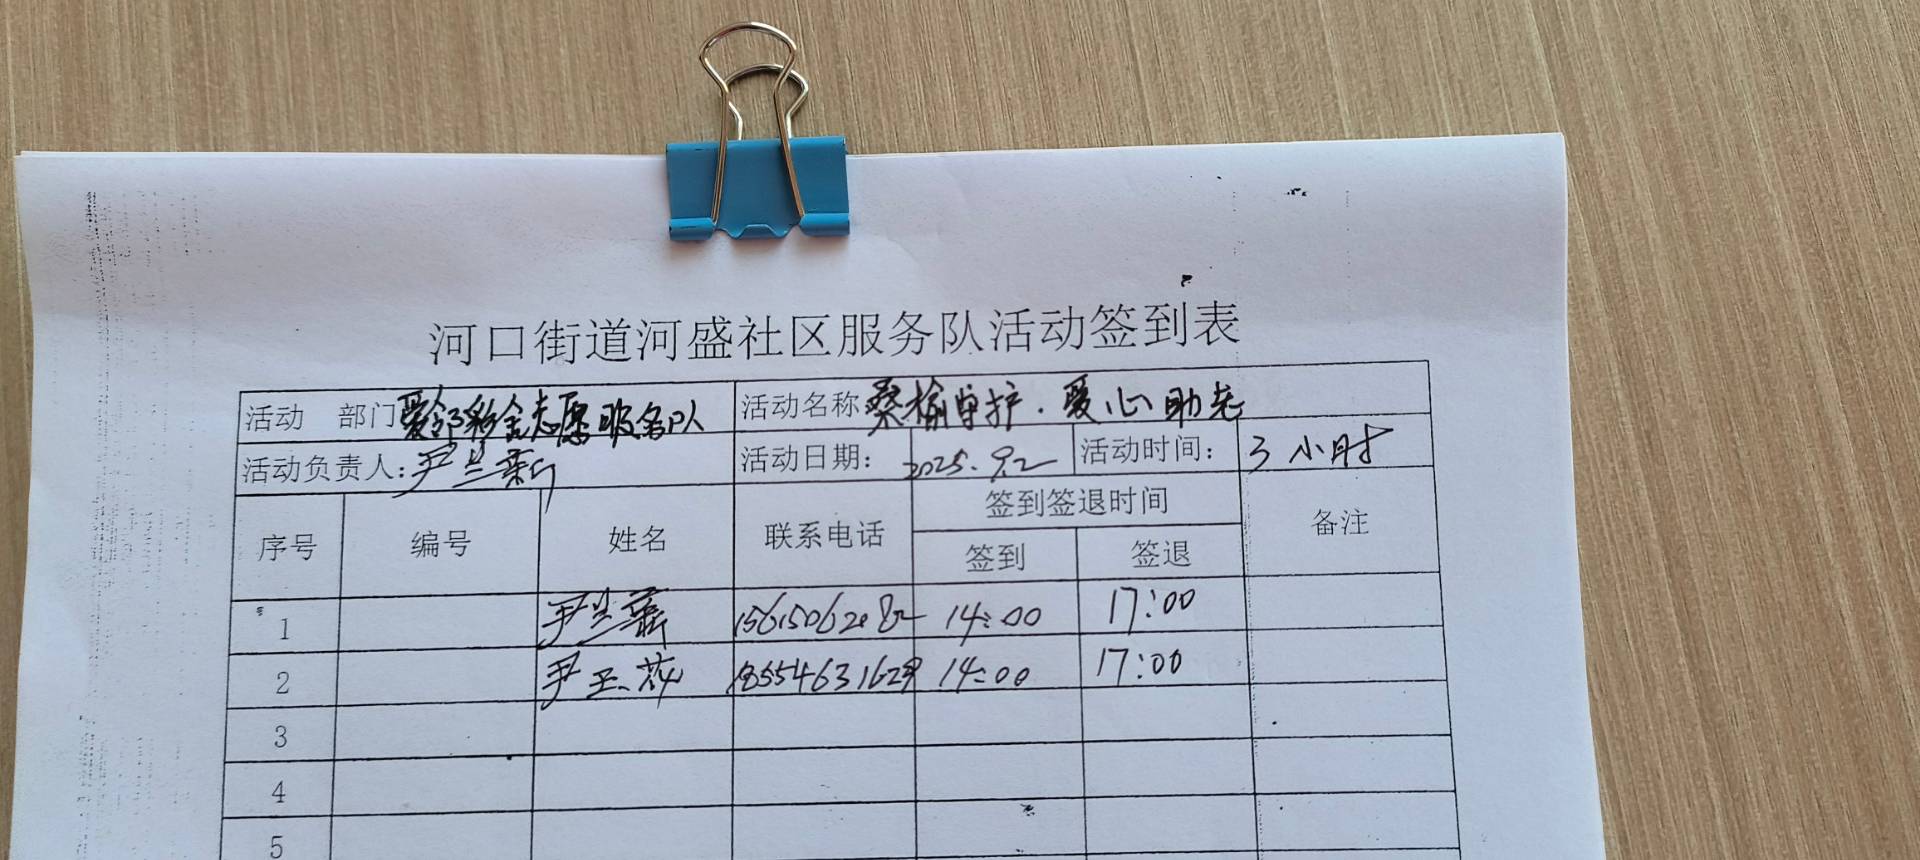 河口街道河盛社区服务队活动签到表
活动 部门 爱邻彩金志愿服务队 活动名称 桑榆守护.爱心助老
活动负责人: 尹兰新 活动日期: 2025.9.2 活动时间: 3小时
序号 编号 姓名 联系电话 签到签退时间 备注
签到 签退
1 尹兰 15615062082 14:00 17:00
2 尹玉 18554631629 14:00 17:00
3
4
5